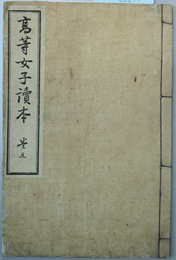 高等女子讀本 卷五